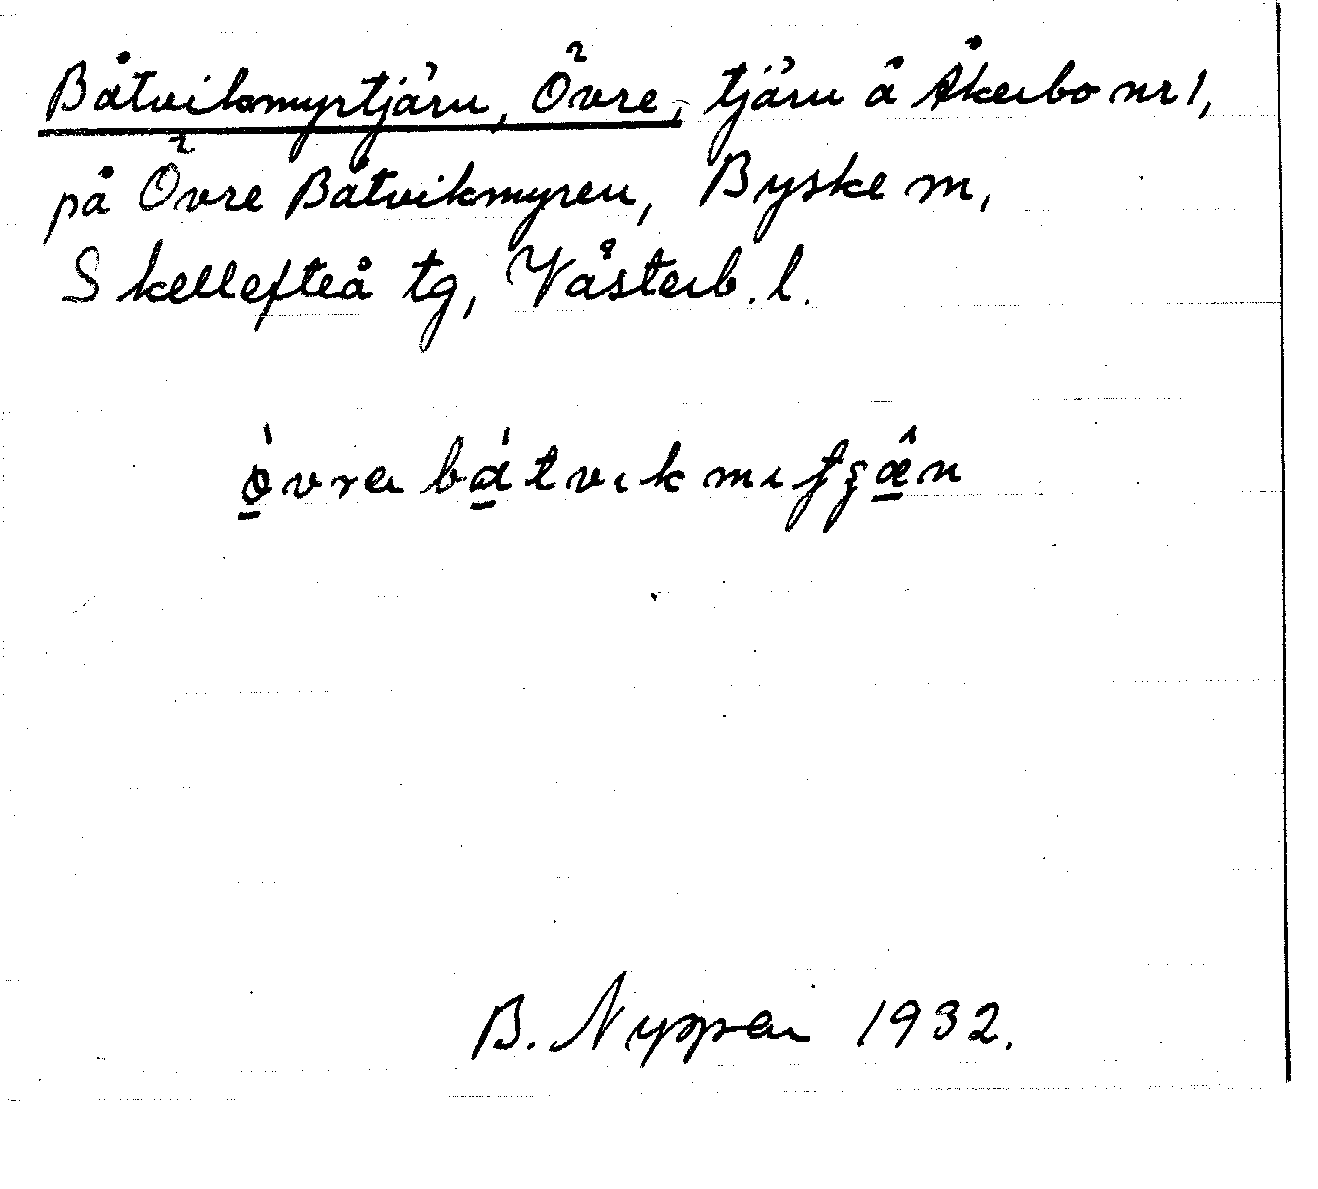 Båtvikmyrtjärn, Övre, tjärn å Åkerbo nr 1,
på Övre Båtvikmyren, Byske sn,
Skellefteå tg, Västerb. l.
B. Nyppen 1932.